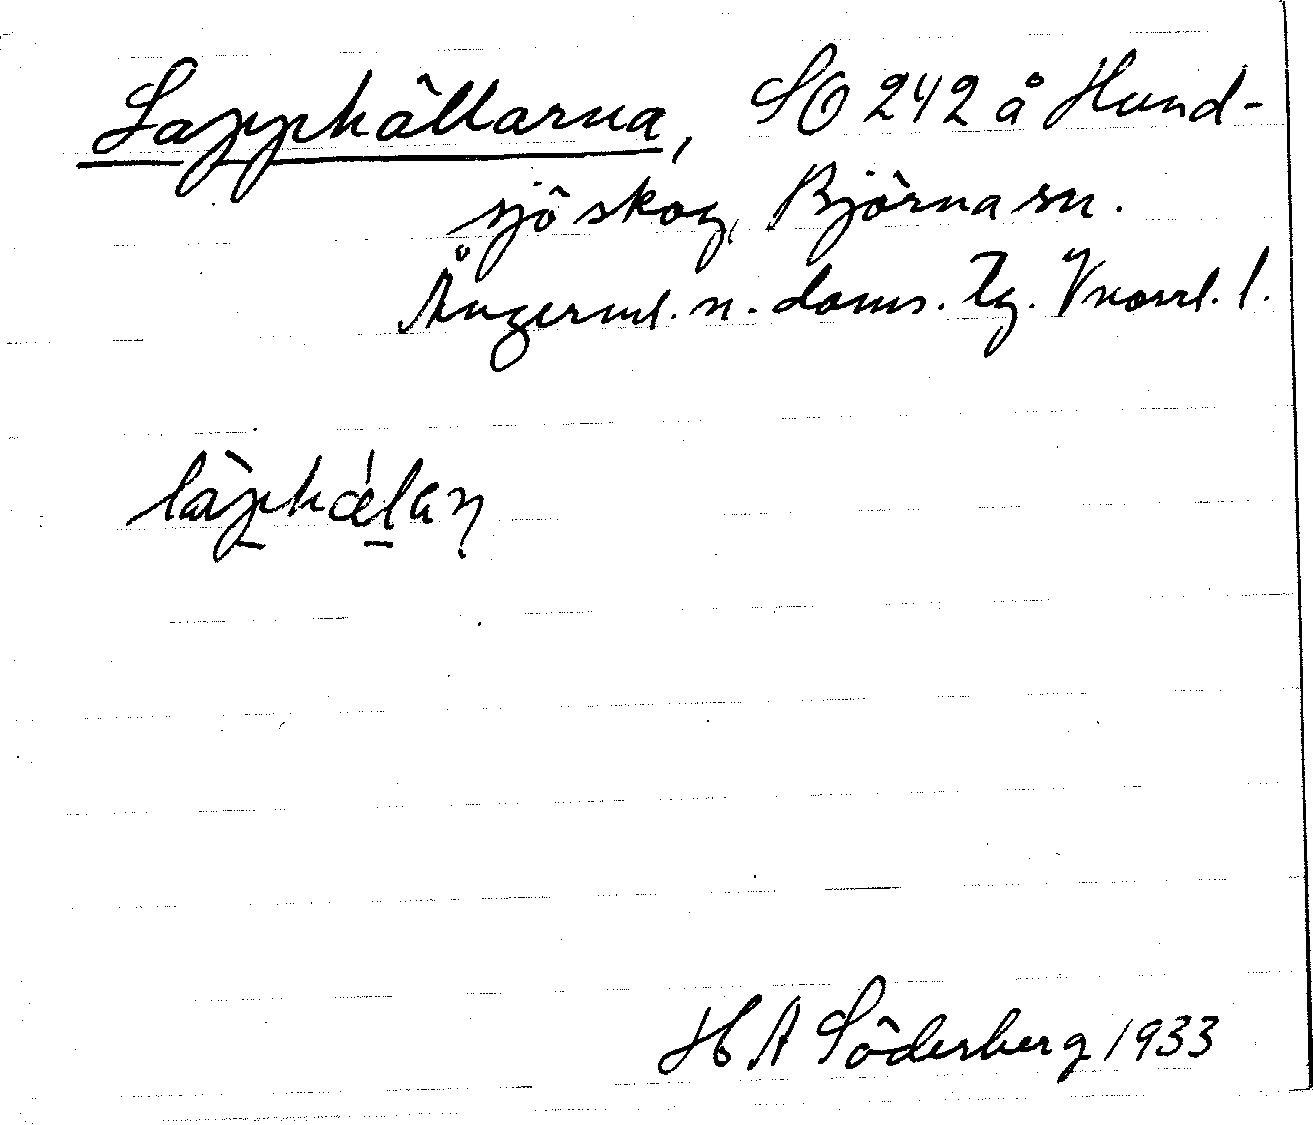 Lapphällarna, SO 242 å Hund-
sjö skog, Björna sn.
Ångerml. n. doms. Tg. Vnorrl. l.
làphǽlaṇ
H A Söderberg 1933